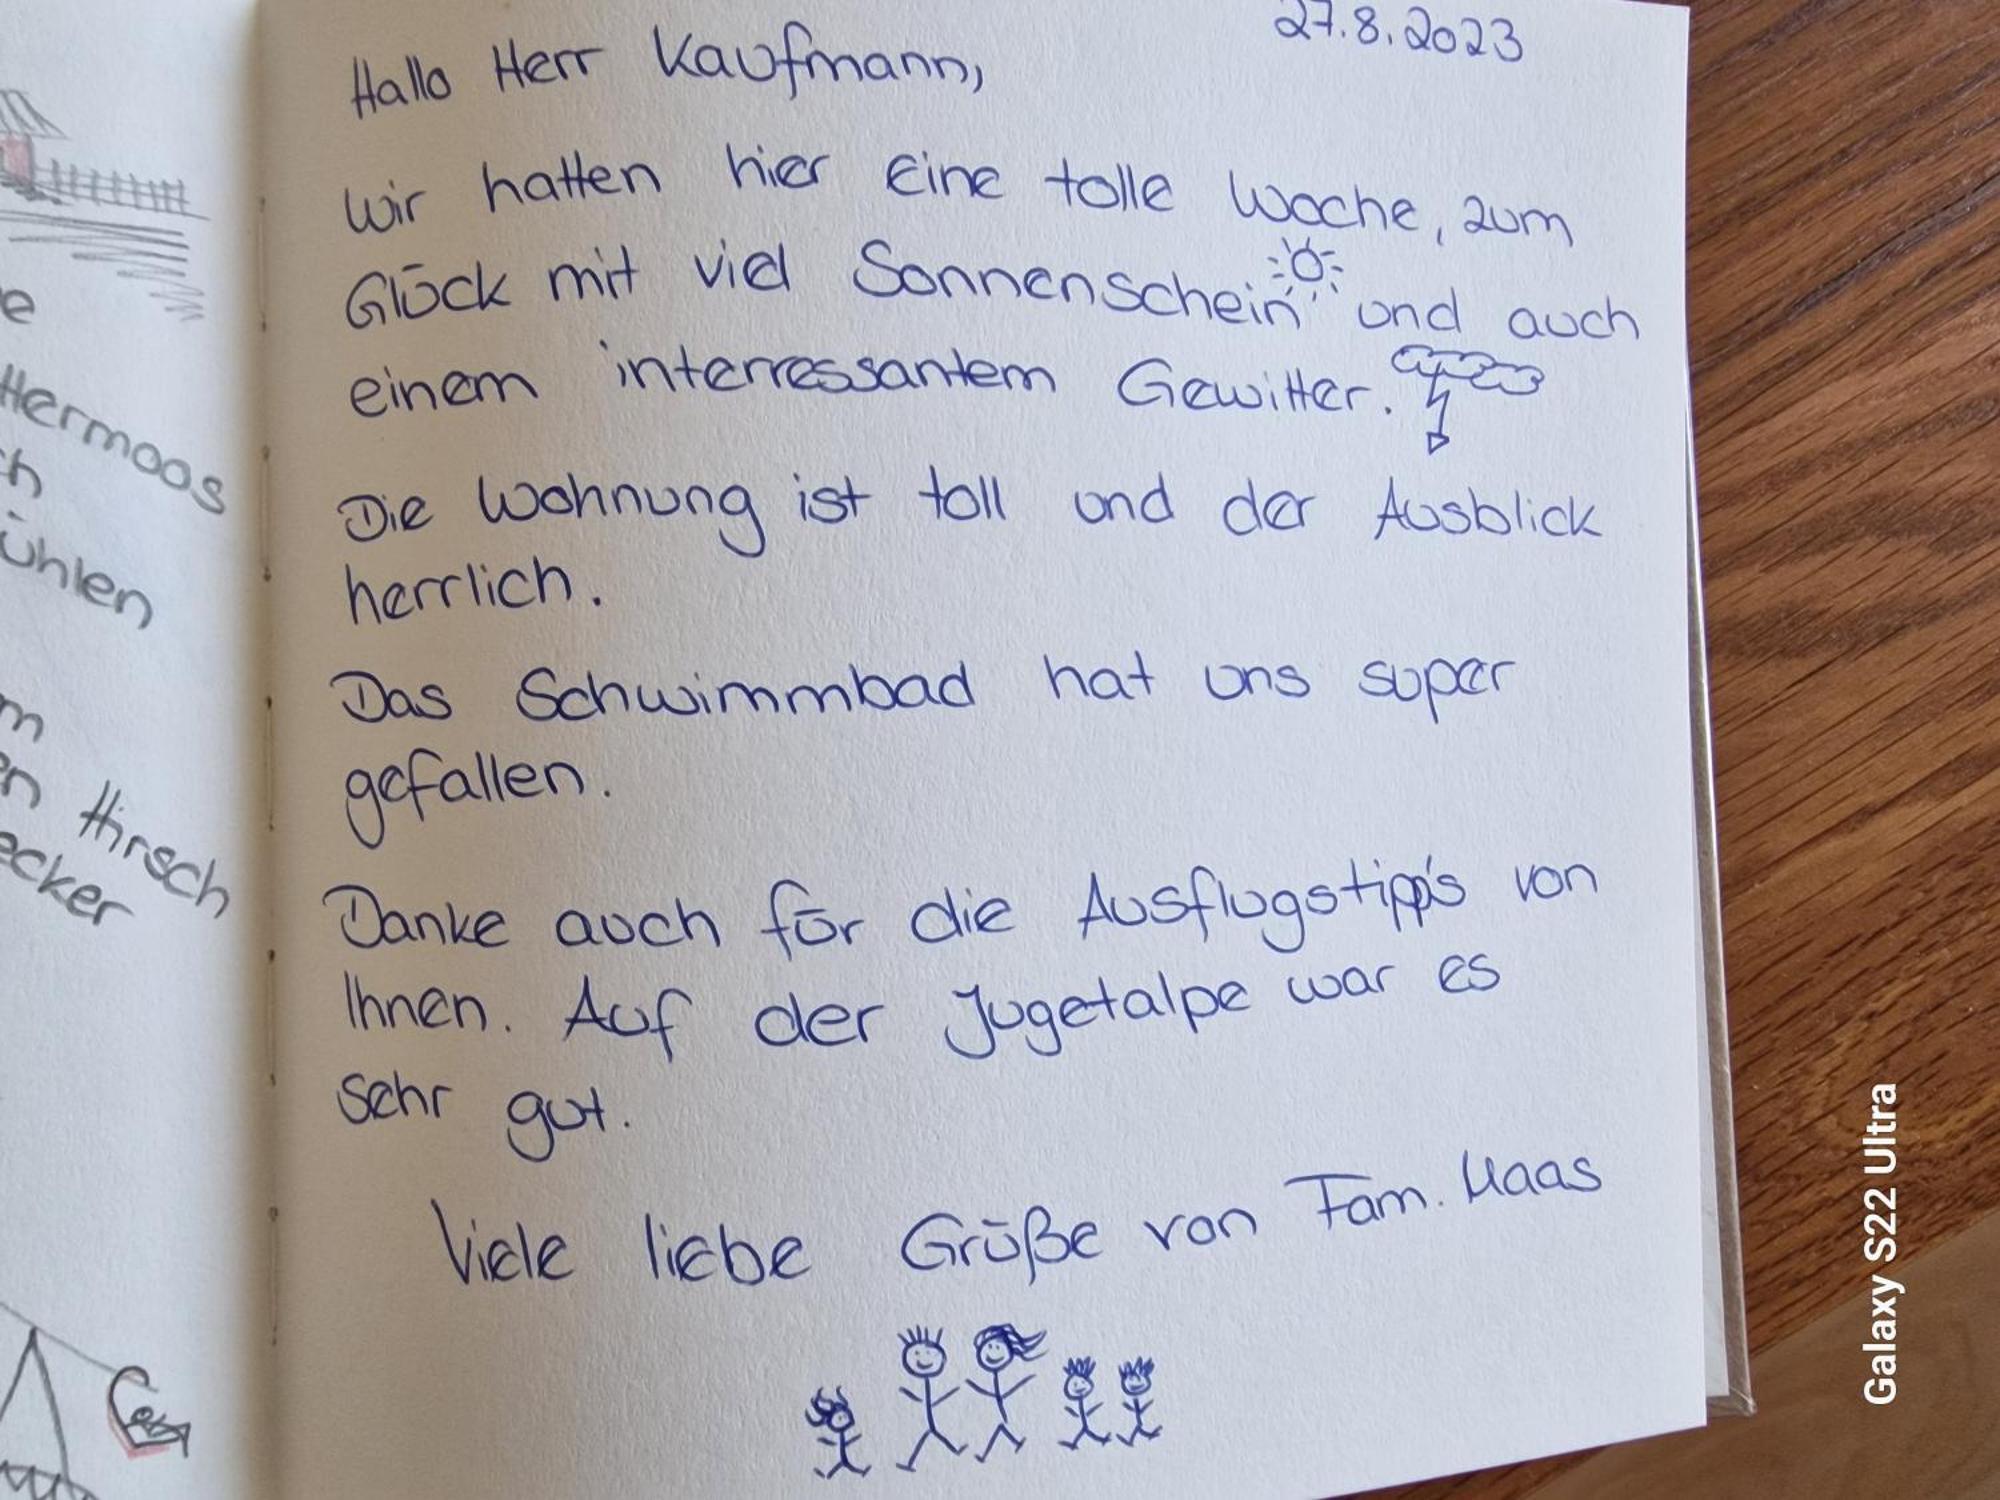 e
Hermoos
ch
ühlen
m
en Hirsch
ecker
27.8.2023
Hallo Herr Kaufmann,
Wir hatten hier eine tolle Woche, zum
Glück mit viel Sonnenschein und auch
einem interressantem Gewitter.
Die Wohnung ist toll und der Ausblick
herrlich.
Das Schwimmbad hat uns super
gefallen.
Danke auch für die Ausflugstipp's von
Ihnen. Auf der Jugetalpe war es
sehr gut.
Viele liebe Grüße von Fam. Maas
Galaxy S22 Ultra